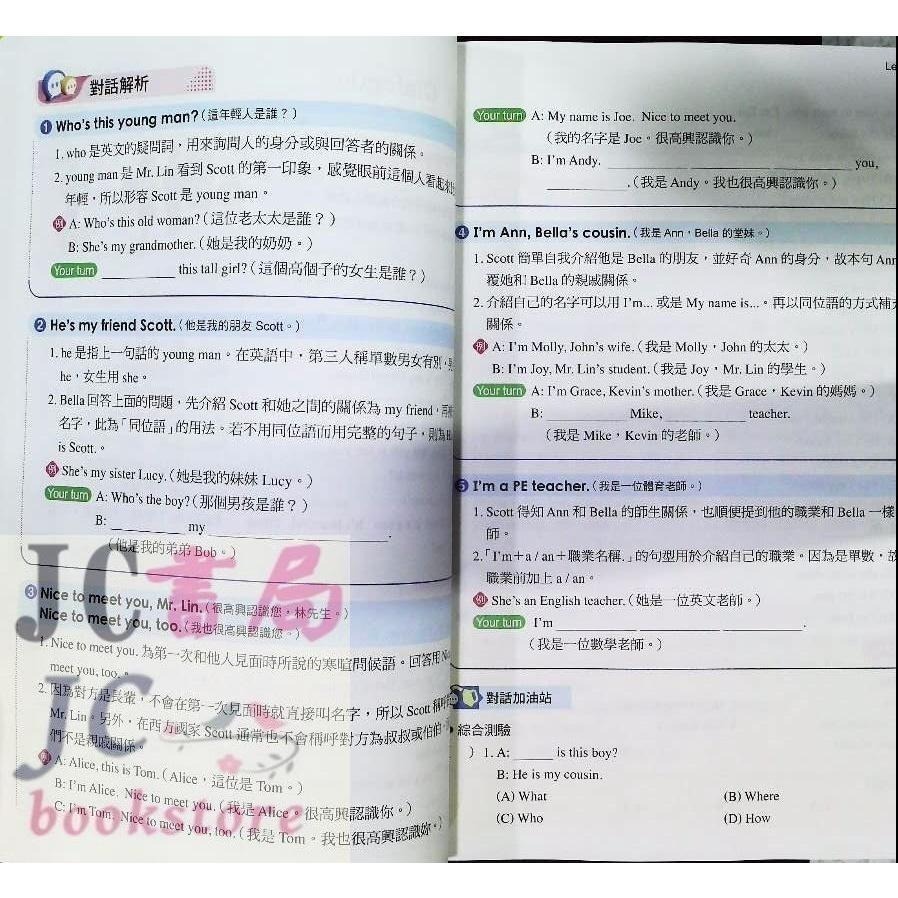 對話解析
1 Who's this young man?(這年輕人是誰?)
1. who 是英文的疑問詞,用來詢問人的身分或與回答者的關係。
2. young man 是 Mr. Lin 看到 Scott 的第一印象,感覺眼前這個人看起來
年輕,所以形容 Scott 是 young man。
例 A: Who's this old woman?(這位老太太是誰?)
B: She's my grandmother.(她是我的奶奶。)
Your turn __________ this tall girl?(這個高個子的女生是誰?)
2 He's my friend Scott.(他是我的朋友 Scott。)
1. he 是指上一句話的 young man。在英語中,第三人稱單數男女有別,
he,女生用 she。
2. Bella 回答上面的問題,先介紹 Scott 和她之間的關係為 my friend,
名字,此為「同位語」的用法。若不用同位語而用完整的句子,則為
is Scott.。
例 She's my sister Lucy.(她是我的妹妹 Lucy。)
Your turn A: Who's the boy?(那個男孩是誰?)
B: __________ my __________________.
(他是我的弟弟 Bob。)
3 Nice to meet you, Mr. Lin.(很高興認識您,林先生。)
Nice to meet you, too.(我也很高興認識您。)
1. Nice to meet you. 為第一次和他人見面時所說的寒暄問候語。回答用
meet you, too.。
2. 因為對方是長輩,不會在第一次見面時就直接叫名字,所以 Scott 稱呼
Mr. Lin。另外,在西方國家 Scott 通常也不會稱呼對方為叔叔或伯伯,
們不是親戚關係。
例 A: Alice, this is Tom.(Alice,這位是 Tom。)
B: I'm Alice. Nice to meet you.(我是 Alice。很高興認識你。)
C: I'm Tom. Nice to meet you, too.(我是 Tom。我也很高興認識妳。)
JC書局
JC
bookstore
Le
Your turn A: My name is Joe. Nice to meet you.
(我的名字是 Joe。很高興認識你。)
B: I'm Andy. ______________________________ you,
__________.(我是 Andy。我也很高興認識你。)
4 I'm Ann, Bella's cousin.(我是 Ann,Bella 的堂妹。)
1. Scott 簡單自我介紹他是 Bella 的朋友,並好奇 Ann 的身分,故本句 Ann
覆她和 Bella 的親戚關係。
2. 介紹自己的名字可以用 I'm... 或是 My name is...。再以同位語的方式補充
關係。
例 A: I'm Molly, John's wife.(我是 Molly,John 的太太。)
B: I'm Joy, Mr. Lin's student.(我是 Joy,Mr. Lin 的學生。)
Your turn A: I'm Grace, Kevin's mother.(我是 Grace,Kevin 的媽媽。)
B: __________ Mike, __________ teacher.
(我是 Mike,Kevin 的老師。)
5 I'm a PE teacher.(我是一位體育老師。)
1. Scott 得知 Ann 和 Bella 的師生關係,也順便提到他的職業和 Bella 一樣
師。
2.「I'm + a / an + 職業名稱.」的句型用於介紹自己的職業。因為是單數,故
職業前加上 a / an。
例 She's an English teacher.(她是一位英文老師。)
Your turn I'm ______________________________.
(我是一位數學老師。)
對話加油站
綜合測驗
) 1. A: _____ is this boy?
B: He is my cousin.
(A) What (B) Where
(C) Who (D) How